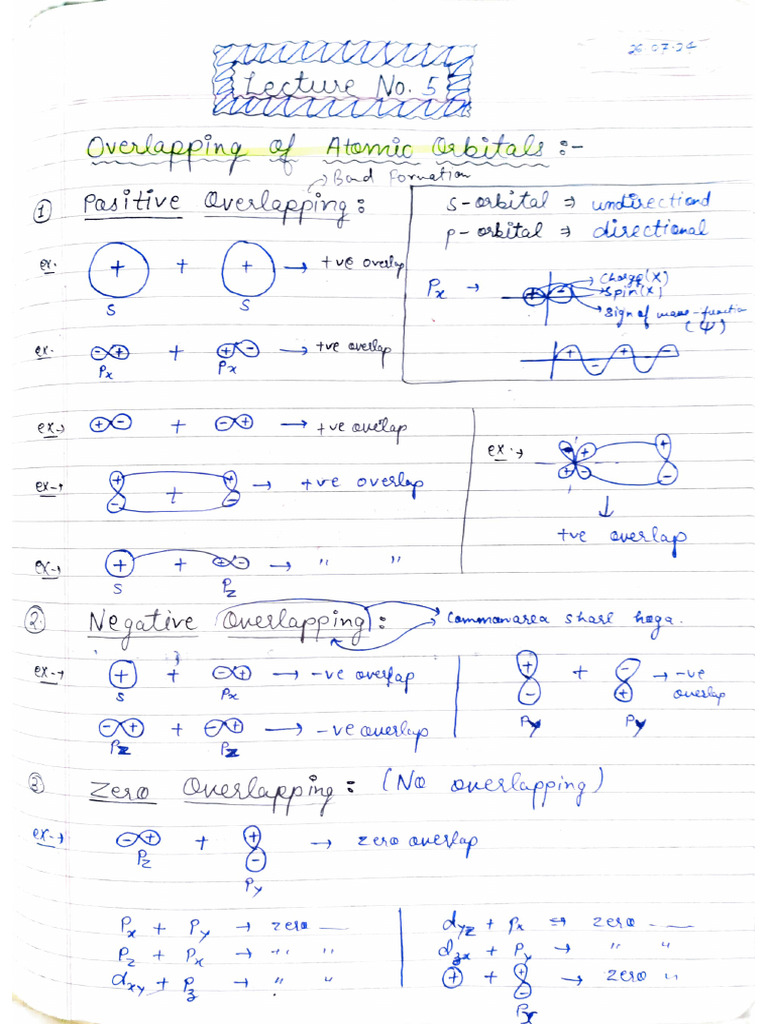 26.07.24
Lecture No. 5
Overlapping of Atomic Orbitals :-
→ Bond Formation
① Positive Overlapping :
s-orbital ⇒ undirectional
p-orbital ⇒ directional
ex. + + + → +ve overlap
s s
Px → + - Charge (X)
Spin (X)
Sign of wave-function
(ψ)
+ - + -
ex. - + + + - → +ve overlap
Px Px
ex → + - + - + → +ve overlap
ex → + - + + - → +ve overlap
ex. → + + - + -
↓
+ve overlap
ex → + + + - → " "
s Pz
②. Negative Overlapping : Common area share hoga.
ex → + + - + → -ve overlap
s Px
+ - + - + → -ve overlap
Py Py
- + + - + → -ve overlap
Pz Pz
③ Zero Overlapping : (No overlapping)
ex → - + + + - → zero overlap
Pz Py
Px + Py → zero —
Pz + Px → " "
dxy + Pz → " "
dyz + Px ⇒ zero —
dzx + Py → " "
+ + + - → zero "
Px